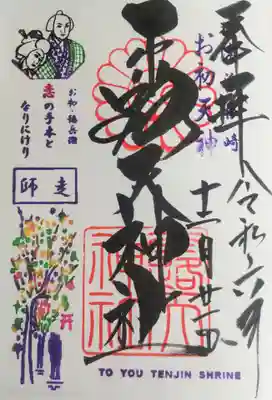 奉拝
崎
お初天神
令和六年
十二月
露天神社
お初・徳兵衛
恋の手本と
なりにけり
師走
TO YOU TENJIN SHRINE